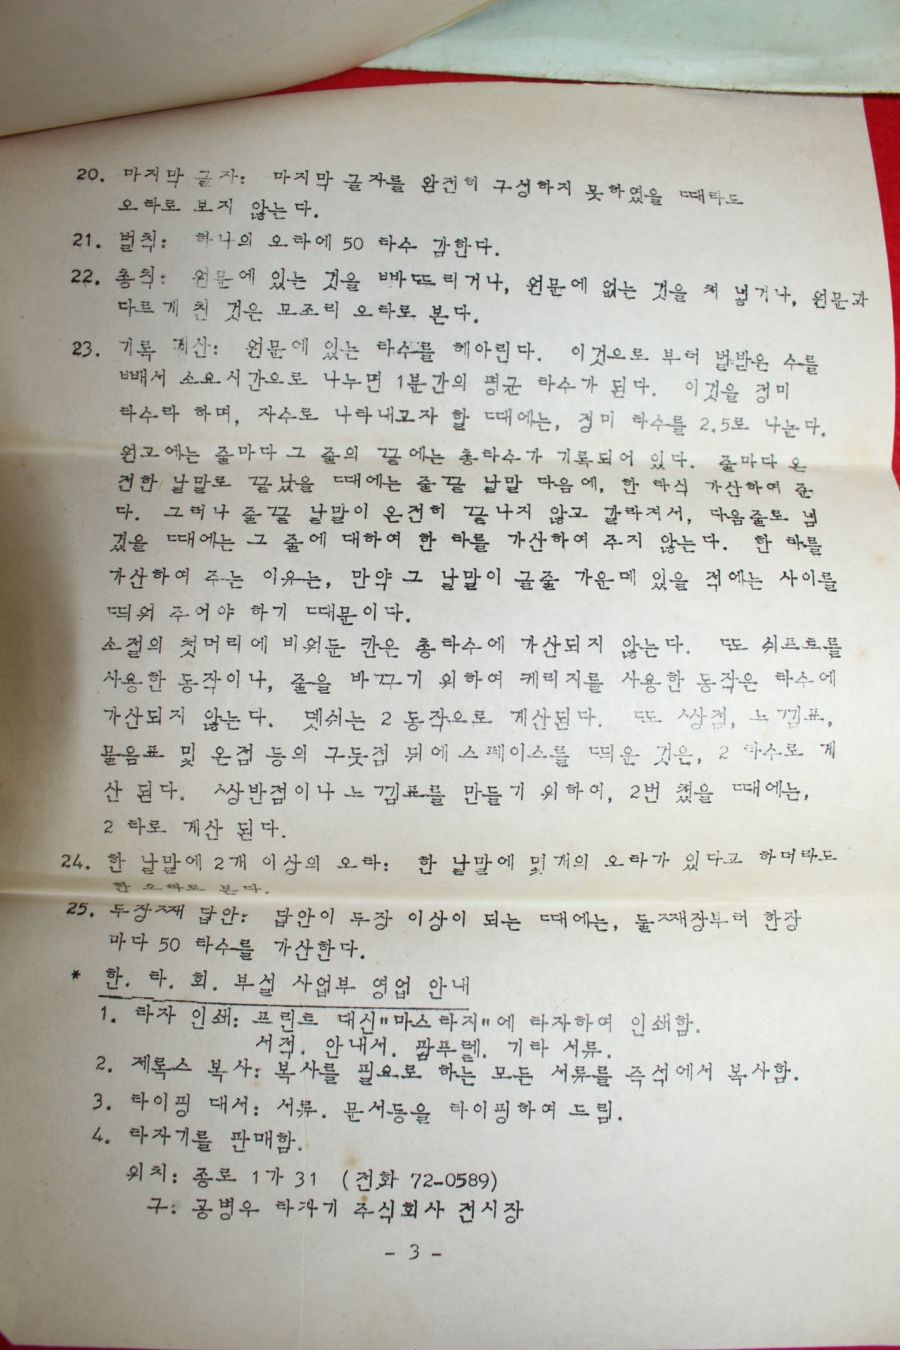 20. 마지막 글자: 마지막 글자를 완전히 구성하지 못하였을 때라도
오타로 보지 않는다.
21. 벌칙: 하나의 오타에 50 타수 감한다.
22. 총칙: 원문에 있는 것을 빠뜨리거나, 원문에 없는 것을 쳐 넣거나, 원문과
다르게 친 것은 모조리 오타로 본다.
23. 기록 계산: 원문에 있는 타수를 헤아린다. 이것으로 부터 벌받은 수를
빼서 소요시간으로 나누면 1분간의 평균 타수가 된다. 이것을 정미
타수라 하며, 자수로 나타내고자 할 때에는, 정미 타수를 2.5로 나눈다.
원고에는 줄마다 그 줄의 끝에는 총타수가 기록되어 있다. 줄마다 온
전한 낱말로 끝났을 때에는 줄끝 낱말 다음에, 한 타씩 가산하여 준
다. 그러나 줄끝 낱말이 온전히 끝나지 않고 갈라져서, 다음줄로 넘
겼을 때에는 그 줄에 대하여 한 타를 가산하여 주지 않는다. 한 타를
가산하여 주는 이유는, 만약 그 낱말이 글줄 가운데 있을 적에는 사이를
띄워 주어야 하기 때문이다.
소절의 첫머리에 비워둔 칸은 총타수에 가산되지 않는다. 또 쉬프트를
사용한 동작이나, 줄을 바꾸기 위하여 캐리지를 사용한 동작은 타수에
가산되지 않는다. 뎃쉬는 2 동작으로 계산된다. 또 쌍점, 느낌표,
물음표 및 온점 등의 구둣점 뒤에 스페이스를 띄운 것은, 2 타수로 계
산 된다. 쌍반점이나 느낌표를 만들기 위하여, 2번 쳤을 때에는,
2 타로 계산 된다.
24. 한 낱말에 2개 이상의 오타: 한 낱말에 몇개의 오타가 있다고 하더라도
한 오타로 본다.
25. 두장째 답안: 답안이 두장 이상이 되는 때에는, 둘째장부터 한장
마다 50 타수를 가산한다.
* 한. 타. 회. 부설 사업부 영업 안내
1. 타자 인쇄: 프린트 대신"마스타지"에 타자하여 인쇄함.
서적. 안내서. 팜푸렡. 기타 서류.
2. 제록스 복사: 복사를 필요로 하는 모든 서류를 즉석에서 복사함.
3. 타이핑 대서: 서류. 문서등을 타이핑하여 드림.
4. 타자기를 판매함.
위치: 종로 1가 31 (전화 72-0589)
구: 공병우 타자기 주식회사 전시장
- 3 -